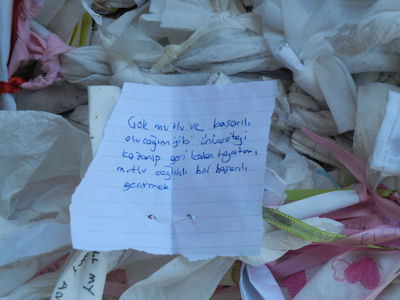 Çok mutlu ve başarılı
olucağım gibi üniversiteyi
kazanıp geri kalan hayatımı
mutlu sağlıklı bol başarılı
geçirmek
ALL MY